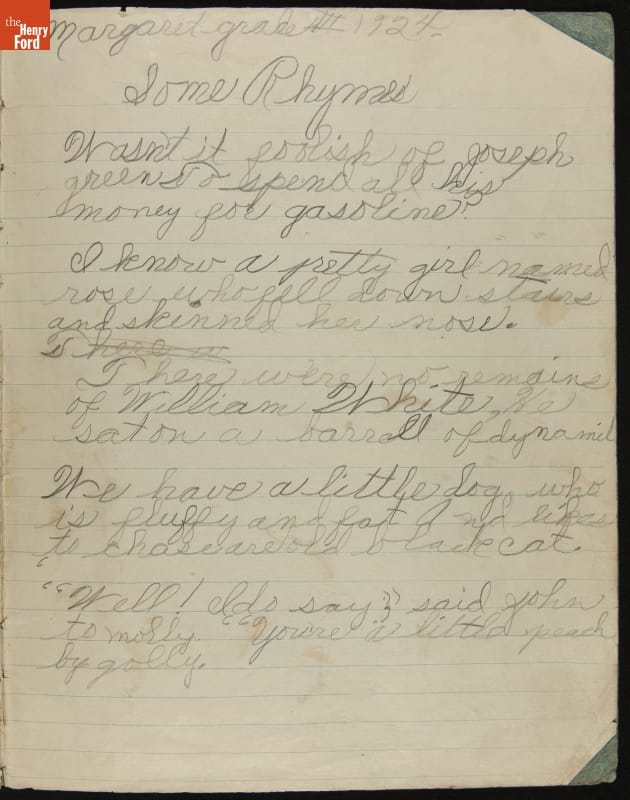 the
Henry
Ford
Margaret grade III 1924
Some Rhymes
Wasn't it foolish of Joseph
green To spend all his
money for gasoline?
I know a pretty girl named
rose who fell down stairs
and skinned her nose.
There w
There were no remains
of William White, He
sat on a barrell of dynamit
We have a little dog, who
is fluffy and fat And likes
to chase are old black cat.
"Well! I do say" said John
to molly. "You're a little peach
by golly.